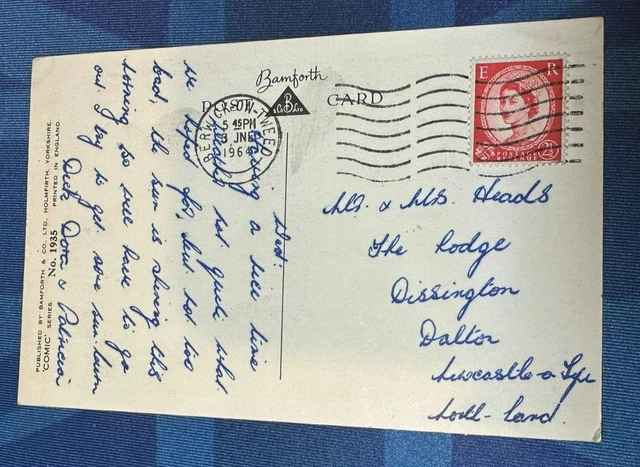 Bamforth
POST CARD
BERWICK-ON-TWEED
5 45PM
JNE
1964
E R
POSTAGE
REVENUE
2½
Wed:
Having a nice time
weather not quite what
we hoped for, but not too
bad, the sun is shining this
morning so will have to go
out & try to get some sun-burn
Dick Dora & Patricia
Mr. & Mrs. Heads
The Lodge
Dissington
Dalton
Newcastle-o-Tyne
North-land.
PUBLISHED BY BAMFORTH & CO. LTD., HOLMFIRTH, YORKSHIRE.
"COMIC" SERIES No. 1935 PRINTED IN ENGLAND.